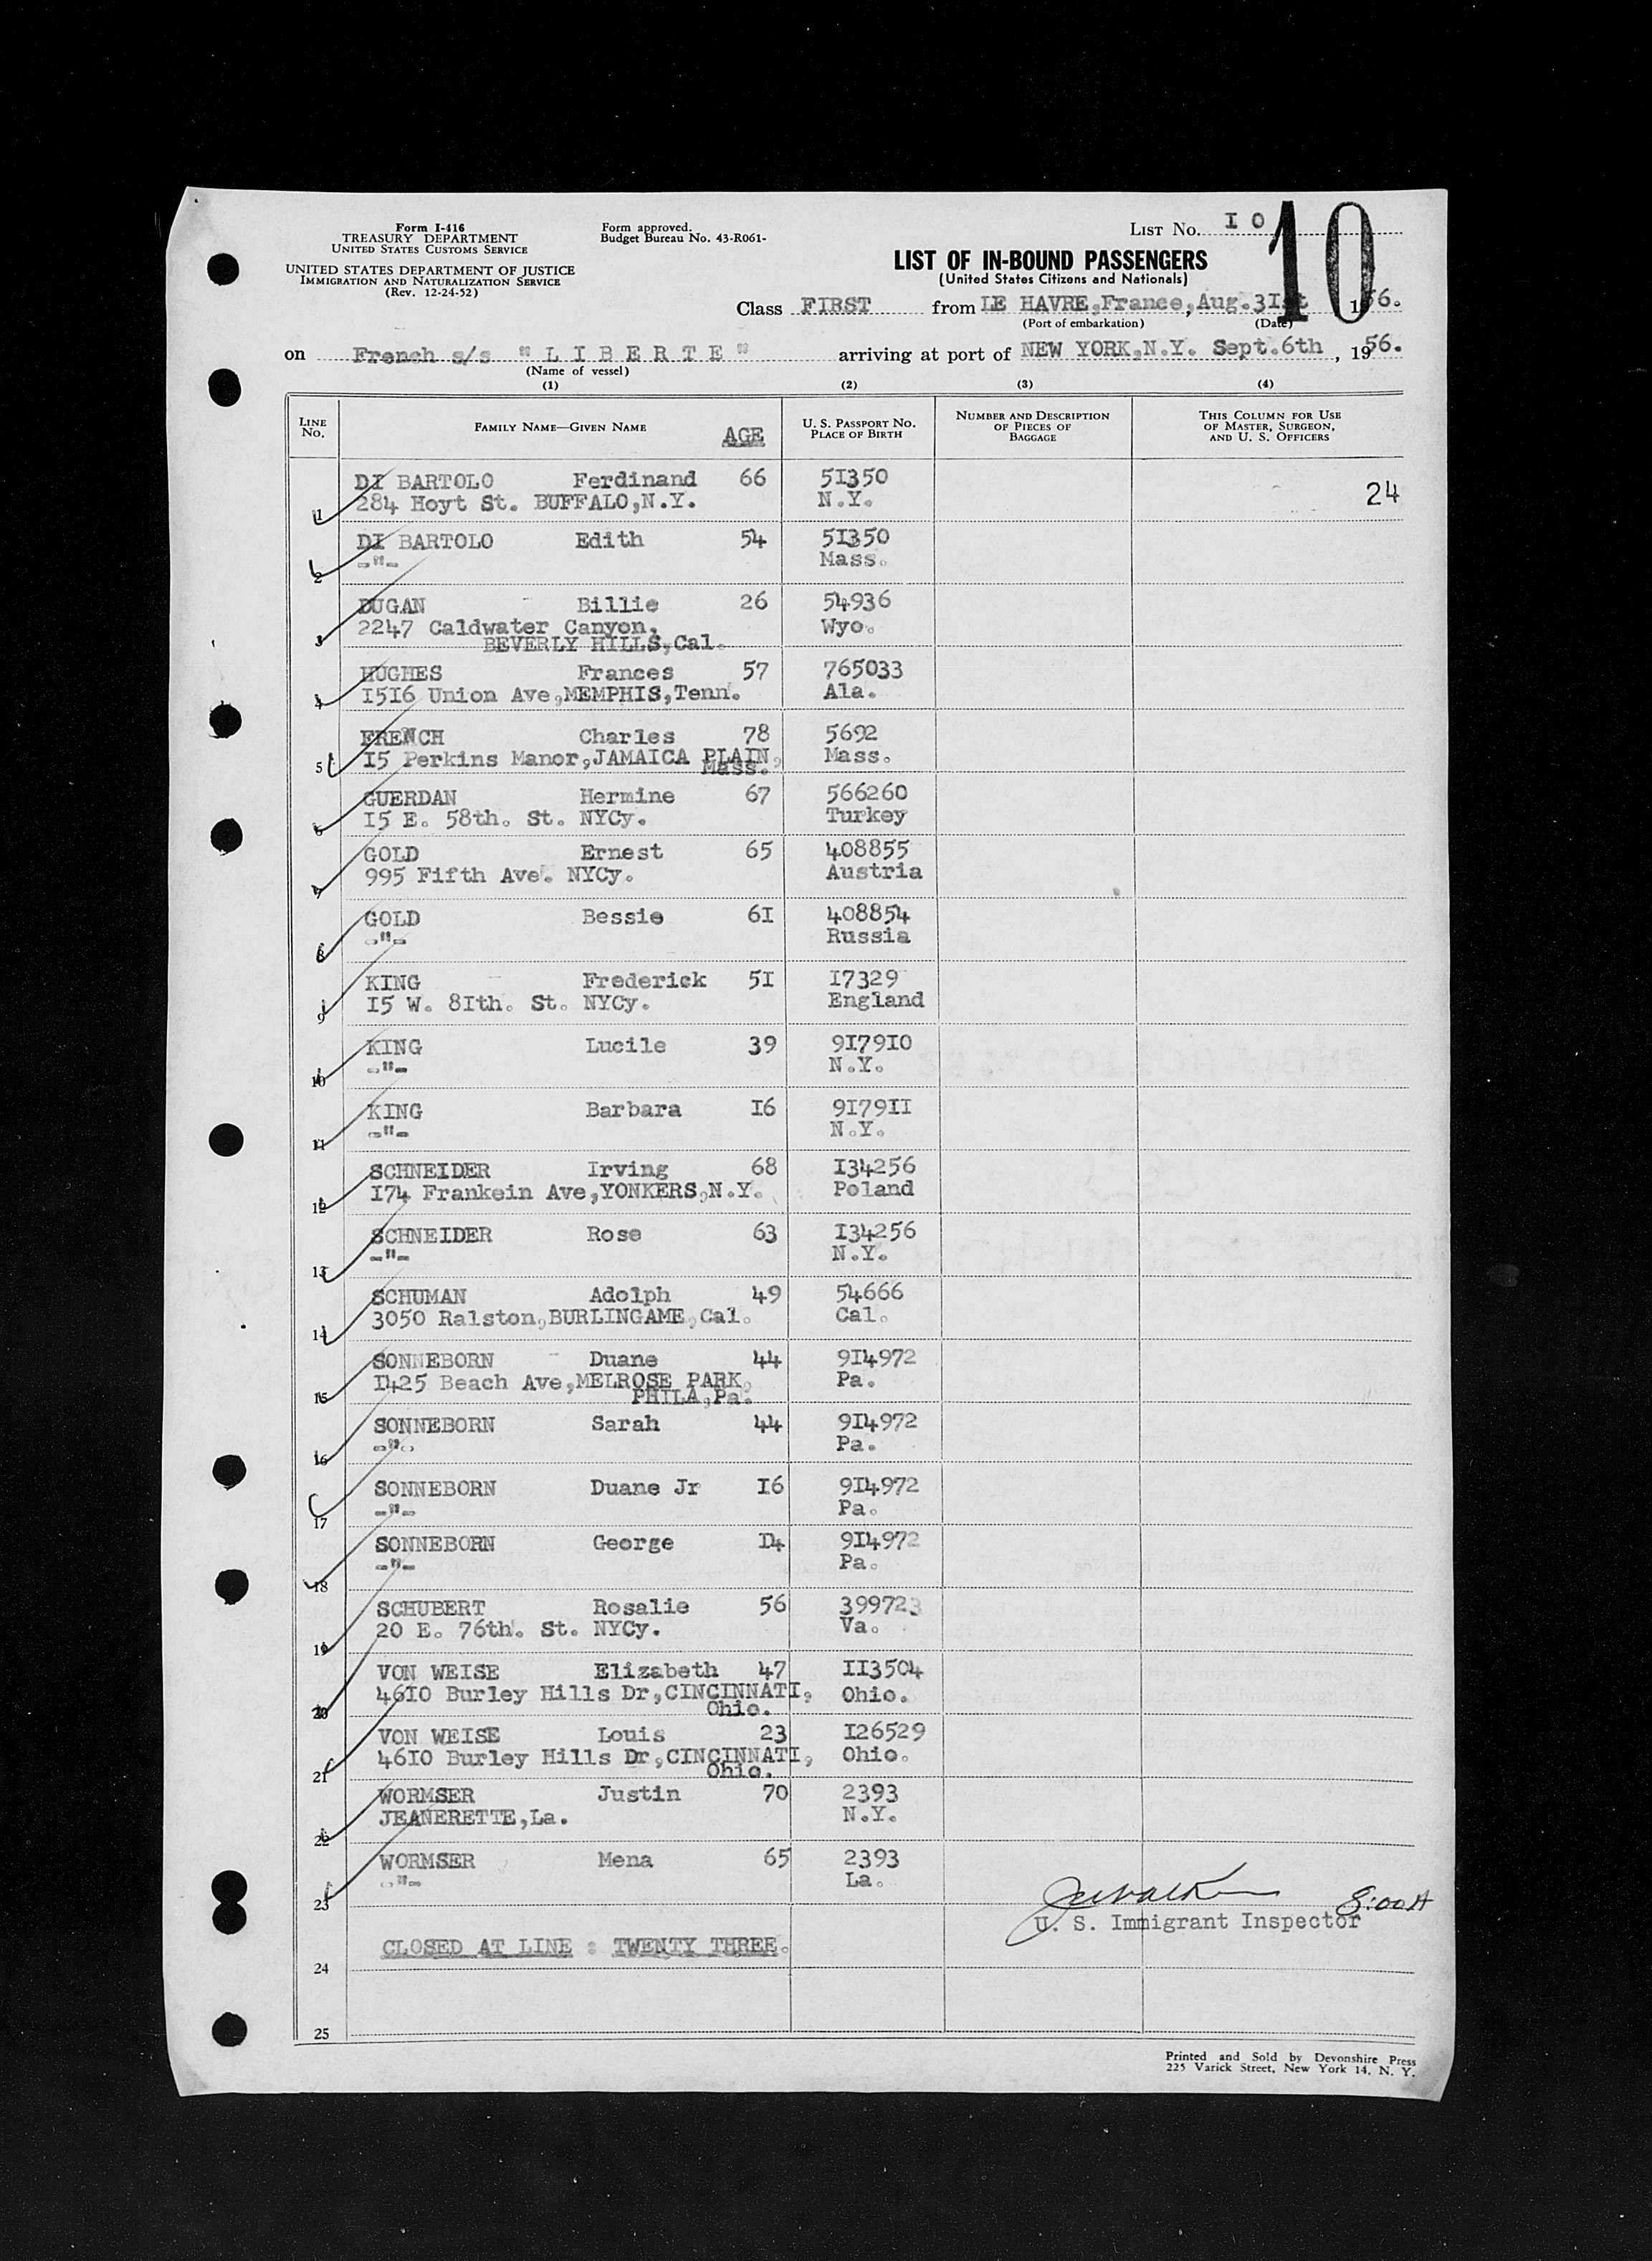 Form I-416
TREASURY DEPARTMENT
UNITED STATES CUSTOMS SERVICE
UNITED STATES DEPARTMENT OF JUSTICE
IMMIGRATION AND NATURALIZATION SERVICE
(Rev. 12-24-52)
Form approved.
Budget Bureau No. 43-R061-
LIST NO. I 0
10
LIST OF IN-BOUND PASSENGERS
(United States Citizens and Nationals)
Class FIRST from LE HAVRE,France, Aug.3Ist 1956.
(Port of embarkation) (Date)
on French s/s " L I B E R T E " arriving at port of NEW YORK,N.Y. Sept.6th , 1956.
(Name of vessel)
(1) (2) (3) (4)
LINE NO. FAMILY NAME—GIVEN NAME AGE U. S. PASSPORT NO. PLACE OF BIRTH NUMBER AND DESCRIPTION OF PIECES OF BAGGAGE THIS COLUMN FOR USE OF MASTER, SURGEON, AND U. S. OFFICERS
DI BARTOLO Ferdinand 66 5I350
1 284 Hoyt St. BUFFALO,N.Y. N.Y. 24
DI BARTOLO Edith 54 5I350
2 -"- Mass.
DUGAN Billie 26 54936
2247 Caldwater Canyon, Wyo.
3 BEVERLY HILLS,Cal.
HUGHES Frances 57 765033
4 I5I6 Union Ave,MEMPHIS,Tenn. Ala.
FRENCH Charles 78 5692
5 I5 Perkins Manor,JAMAICA PLAIN, Mass.
Mass.
GUERDAN Hermine 67 566260
6 I5 E. 58th. St. NYCy. Turkey
GOLD Ernest 65 408855
7 995 Fifth Ave. NYCy. Austria
GOLD Bessie 6I 408854
8 -"- Russia
KING Frederick 5I I7329
9 I5 W. 8Ith. St. NYCy. England
KING Lucile 39 9I79I0
10 -"- N.Y.
KING Barbara I6 9I79II
11 -"- N.Y.
SCHNEIDER Irving 68 I34256
12 I74 Frankein Ave,YONKERS,N.Y. Poland
SCHNEIDER Rose 63 I34256
13 -"- N.Y.
SCHUMAN Adolph 49 54666
14 3050 Ralston,BURLINGAME,Cal. Cal.
SONNEBORN Duane 44 9I4972
I425 Beach Ave,MELROSE PARK, Pa.
15 PHILA,Pa.
SONNEBORN Sarah 44 9I4972
16 -"- Pa.
SONNEBORN Duane Jr I6 9I4972
17 -"- Pa.
SONNEBORN George I4 9I4972
18 -"- Pa.
SCHUBERT Rosalie 56 399723
19 20 E. 76th. St. NYCy. Va.
VON WEISE Elizabeth 47 II3504
46I0 Burley Hills Dr,CINCINNATI, Ohio.
20 Ohio.
VON WEISE Louis 23 I26529
46I0 Burley Hills Dr,CINCINNATI, Ohio.
21 Ohio.
WORMSER Justin 70 2393
22 JEANERETTE,La. N.Y.
WORMSER Mena 65 2393
23 -"- La.
8:00A
U. S. Immigrant Inspector
CLOSED AT LINE : TWENTY THREE.
24
25
Printed and Sold by Devonshire Press
225 Varick Street, New York 14, N. Y.